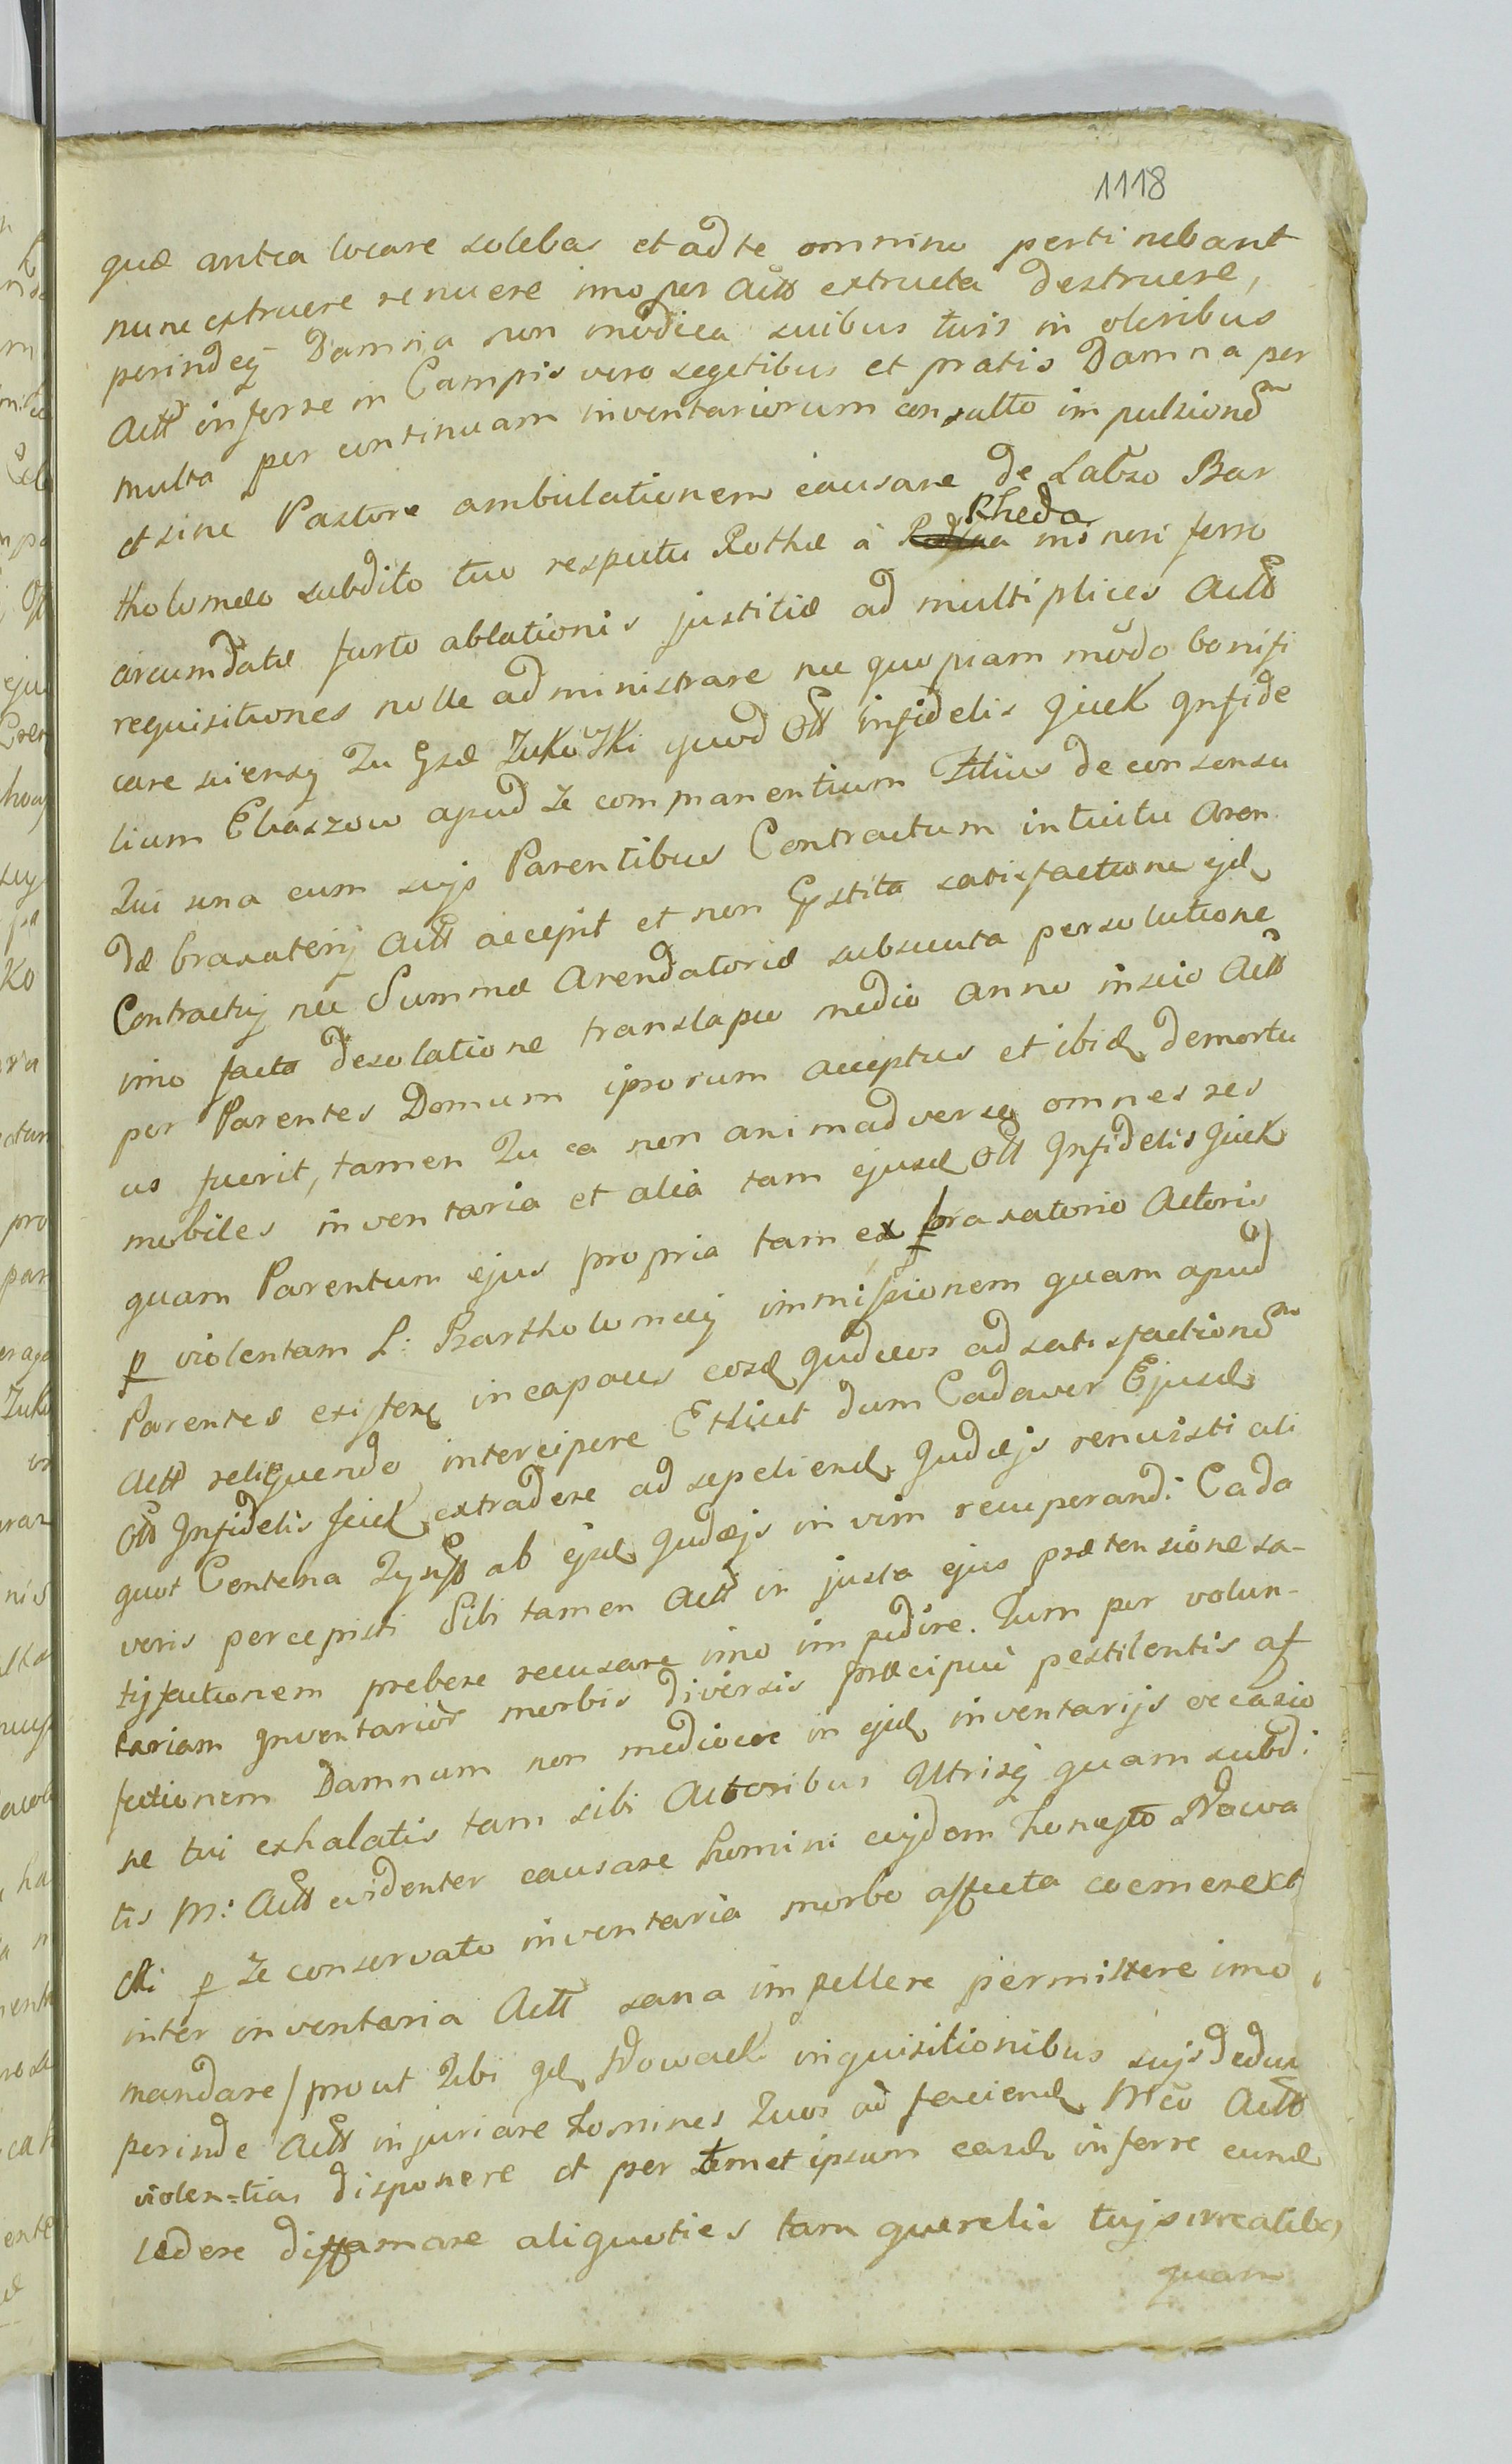 1118
quæ antea locare solebas et ad te omnino pertinebant
nunc extruere renuere imo per Actt extructa destruere,
perindeq Damna non modica suibus tuis in oleribus
Actt inferre in Campis vero segetibus et pratis Damna per
multa per continuam inventariorum consulto impulsionem
et sine Pastore ambulationem causare de Labro Bar
tholomeo subdito tuo respectu Rothæ à Rheda minori ferro
circumdatæ furto ablationis justitiæ ad multiplices Actt
requisitiones nolle administrare nec quopiam modo bonifi
care sciensq Tu Gsæ Zukowski quod Ott infidelis Juck Infide
lium Eliaszow apud Te commanentium Filius de consensu
Tui una cum sujs Parentibus Contractum intuitu Aren
dæ braxaterij Actt accepit et non pstita satisfactione ejd
Contractuj nec Summæ Arendatoriæ subsecuta persolutione
imo facta desolatione translapso medio anno inscio Actt
per Parentes Domum ipsorum acceptus et ibid demortu
us fuerit, tamen Tu ea non animadverso omnes res
mobiles inventaria et alia tam ejusd Ott Infidelis Juck
quam Parentum ejus propria tam ex braxatorio Actoris
p violentam L: Bartholomæj immissionem quam apud
Parentes existen incapaces eosd Judæos ad satisfactionem
Actt reliquendo intercipere Et licet dum Cadawer Ejusd
Ott Infidelis Juck extradere ad sepeliend Judæjs renuisti ali
quot Centena Tynff ab ijsd Judæjs in vim recuperandi Cada
veris percepisti Sibi tamen Actt in justa ejus prætensione sa-
tisfactionem prebere recusare imo impedire. Tum per volun-
tariam Inventarior morbis diversis præcipue pestilentis af
fectionem Damnum non mediocre in ejd inventarijs occasio
ne tui exhalatis tam sibi Actoribus Utrisq quam subdi
tis M: Actt evidenter causare homini cujdam honesto Nowa
cki p Te conservato inventaria morbo affecta coemere et
inter inventaria Actt sana impellere permittere imo
mandare/ prout Tibi id Nowack inquisitionibus sujs dedux
perinde Actt injuriare homines Tuos ad faciend Mco Actt
violen=tias disponere et per temet ipsum easd inferre eund
lædere diffamare aliquoties tam querelis tujs irreatibq
quam